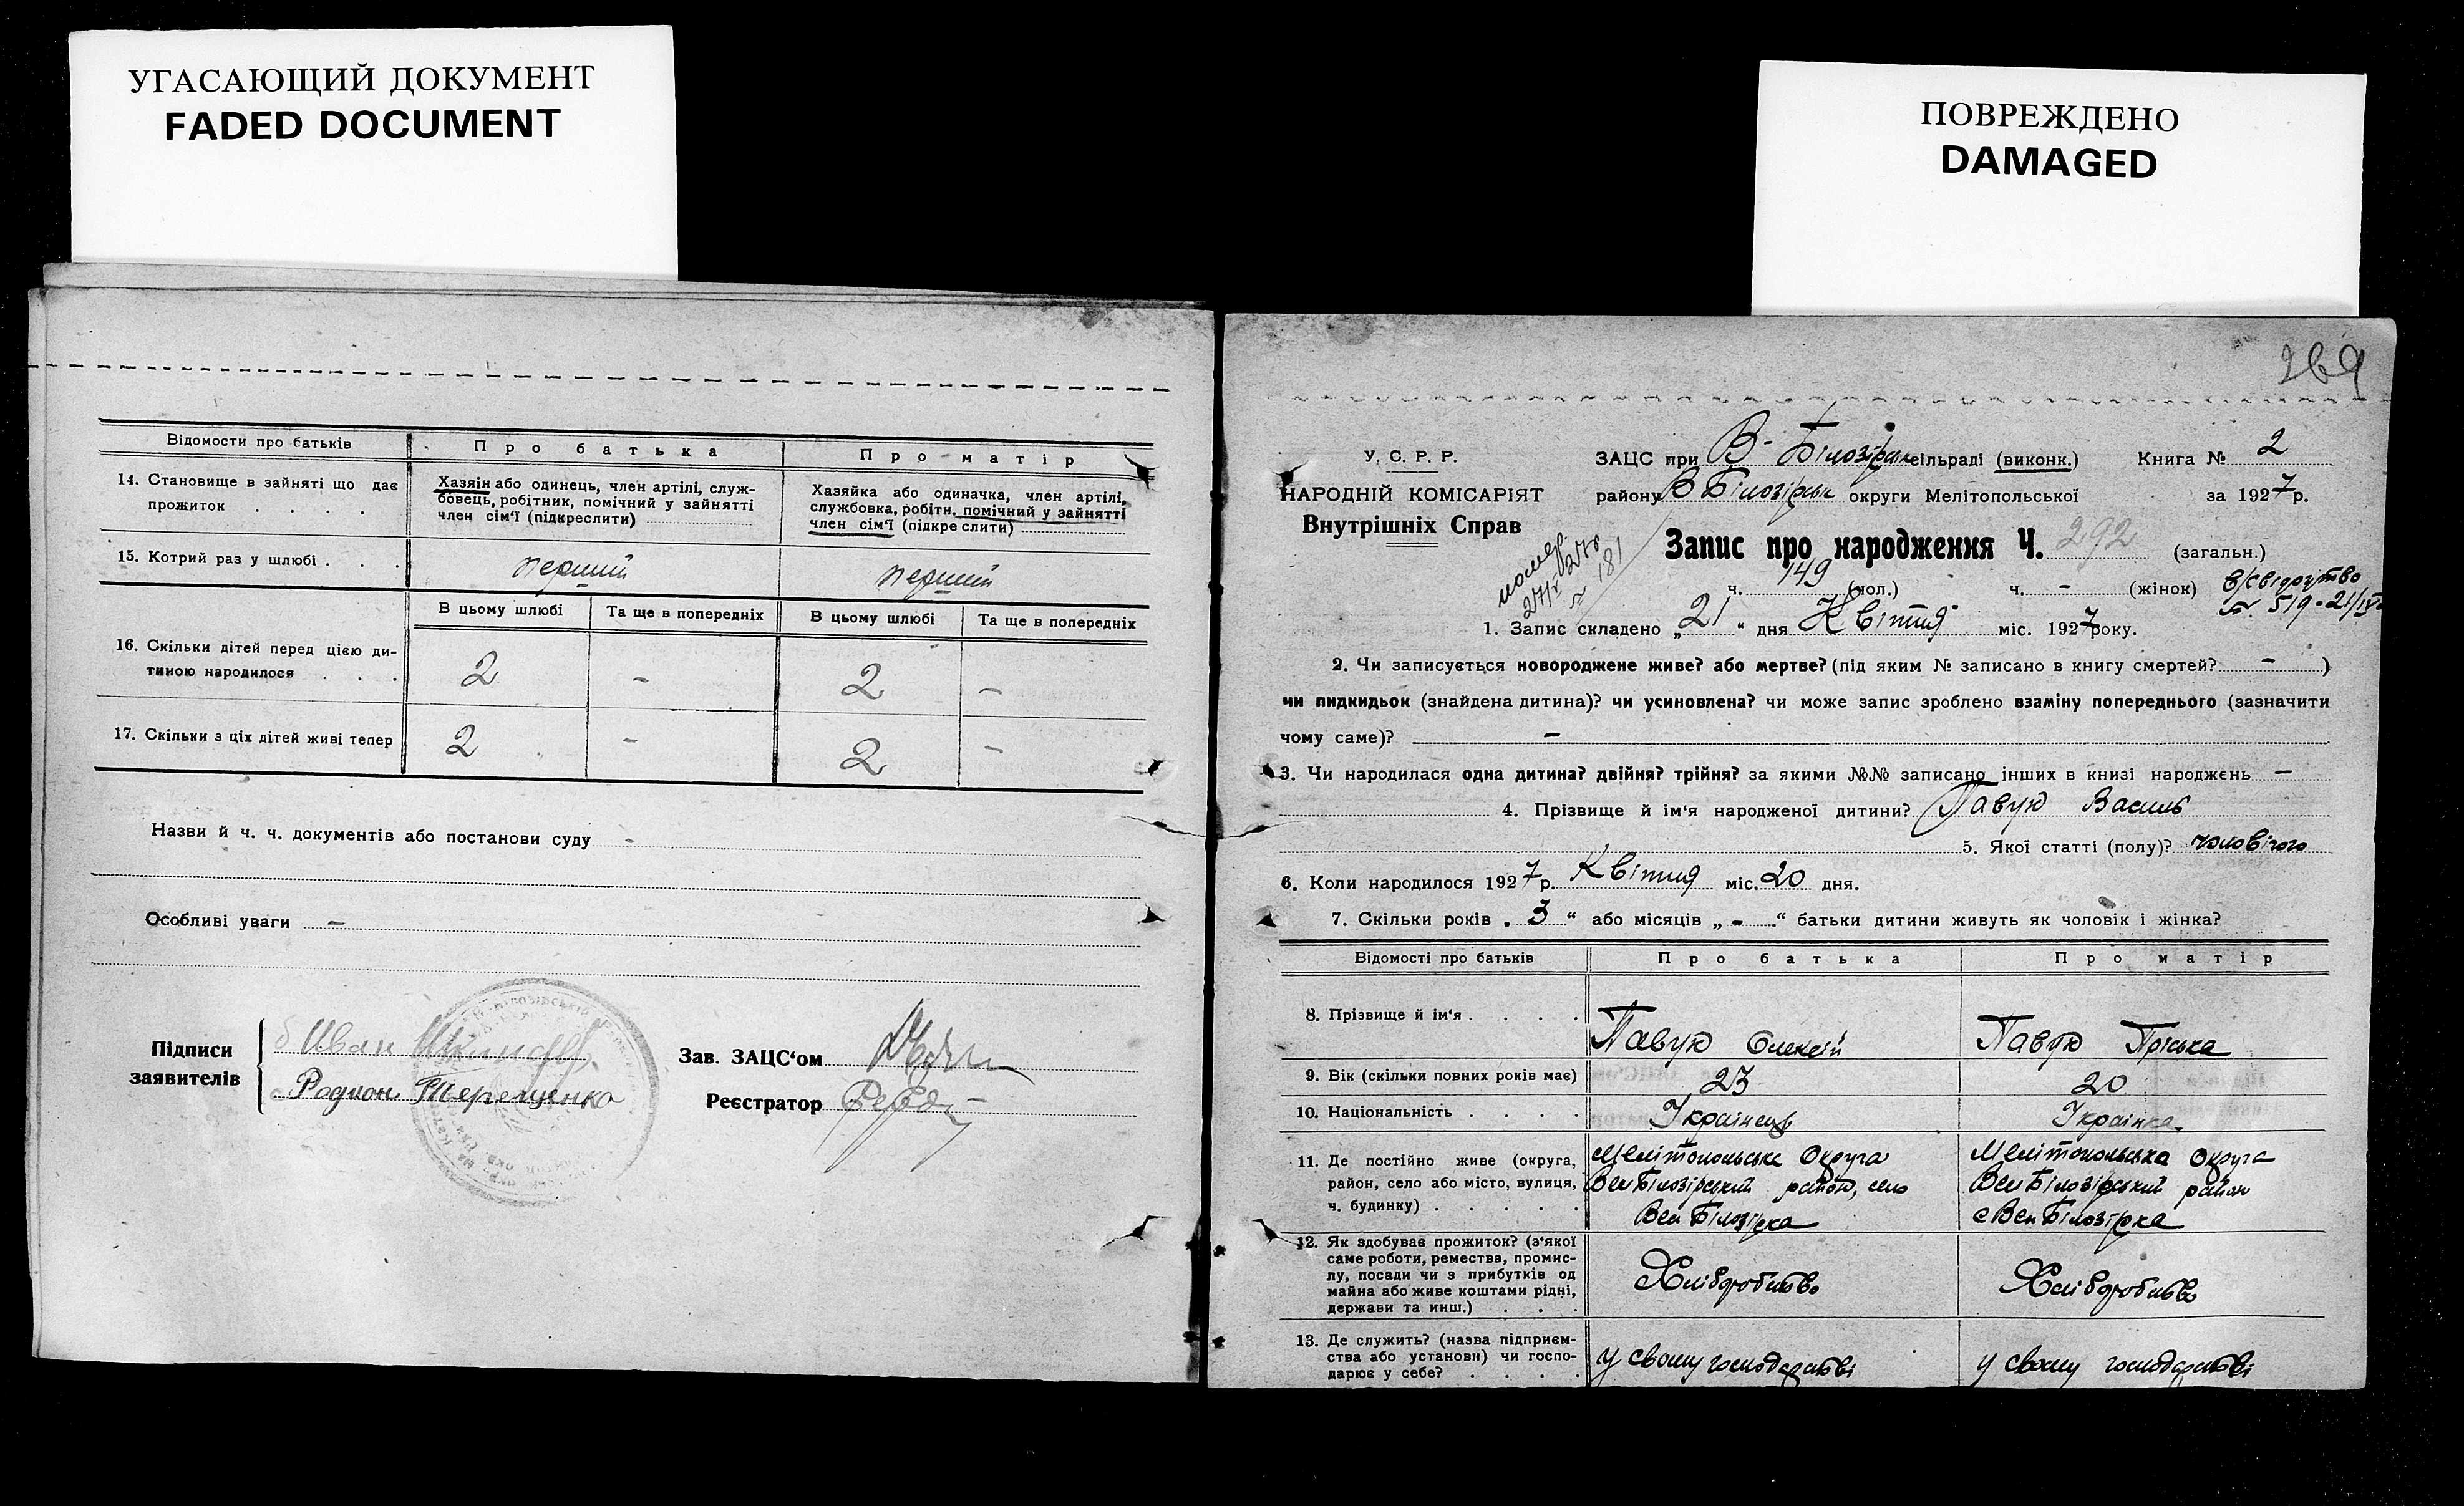 УГАСАЮЩИЙ ДОКУМЕНТ
FADED DOCUMENT
ПОВРЕЖДЕНО
DAMAGED
Відомости про батьків
Про батька
Про матір
14. Становище в зайняті що дає
прожиток . . . .
Хазяін або одинець, член артілі, служ-
бовець, робітник, помічний у зайнятті
член сім'ї (підкреслити)
Хазяйка або одиначка, член артілі,
службовка, робітн. помічний у зайнятті
член сім'ї (підкреслити)
15. Котрий раз у шлюбі . . .
перший
перший
В цьому шлюбі
Та ще в попередніх
В цьому шлюбі
Та ще в попередніх
16. Скільки дітей перед цією ди-
тиною народилося . . .
2 - 2 -
17. Скільки з ціх дітей живі тепер
2 - 2 -
Назви й ч. ч. документів або постанови суду -
Особливі уваги -
Підписи
заявителів
Иван
Родион Терещенко
Зав. ЗАЦС'ом
Реєстратор
269
У. С. Р. Р.
НАРОДНІЙ КОМІСАРІЯТ
Внутрішніх Справ
ЗАЦС при В-Білозірськ сільраді (виконк.)
Книга № 2
району В Білозірськ округи Мелітопольської
за 1927 р.
Запис про народження Ч. 292 (загальн.)
ч. 149 (чол.) ч. - (жінок)
помер
№ 181
№ 519 - 21/IV
1. Запис складено „21“ дня Квітня міс. 1927 року.
2. Чи записується новороджене живе? або мертве? (під яким № записано в книгу смертей? - )
чи пидкидьок (знайдена дитина)? чи усиновлена? чи може запис зроблено взаміну попереднього (зазначити
чому саме)? -
3. Чи народилася одна дитина? двійня? трійня? за якими №№ записано інших в книзі народжень -
4. Прізвище й ім'я народженої дитини? Павук Василь
5. Якої статті (полу)? чоловічого
6. Коли народилося 1927 р. Квітня міс. 20 дня.
7. Скільки років „3“ або місяців „-“ батьки дитини живуть як чоловік і жінка?
Відомості про батьків
Про батька
Про матір
8. Прізвище й ім'я . . . .
Павук Олексій
Павук Пріська
9. Вік (скільки повних років має)
23
20
10. Національність . . . .
Українець
Українка
11. Де постійно живе (округа,
район, село або місто, вулиця,
ч. будинку) . . . . .
Мелітопольська Округа
Вел Білозірський район, село
Вел Білозірка
Мелітопольська Округа
Вел Білозірський район
с Вел Білозірка
12. Як здобуває прожиток? (з'якої
саме роботи, ремества, промис-
лу, посади чи з прибутків од
майна або живе коштами рідні,
держави та инш.) . . .
Хліборобство
Хліборобство
13. Де служить? (назва підприєм-
ства або установи) чи госпо-
дарює у себе? . . . .
у своему господарстві
у своему господарстві